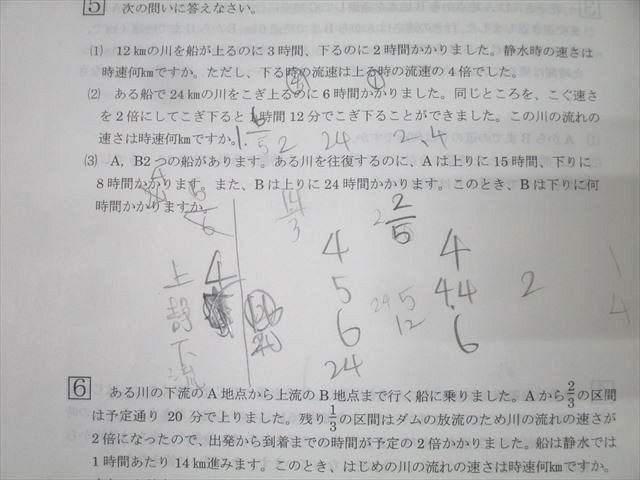 5 次の問いに答えなさい。
(1) 12㎞の川を船が上るのに3時間、下るのに2時間かかりました。静水時の速さは
時速何㎞ですか。ただし、下る時の流速は上る時の流速の4倍でした。
(2) ある船で24㎞の川をこぎ上るのに6時間かかりました。同じところを、こぐ速さ
を2倍にしてこぎ下ると1時間12分でこぎ下ることができました。この川の流れの
速さは時速何㎞ですか。
24 2.4
(3) A，B2つの船があります。ある川を往復するのに、Aは上りに15時間、下りに
8時間かかります。また、Bは上りに24時間かかります。このとき、Bは下りに何
時間かかりますか。
14/3 2/5
上 4 4 4
静 5 4.4 2
下 6 12 6
流 24
6 ある川の下流のA地点から上流のB地点まで行く船に乗りました。Aから2/3の区間
は予定通り20分で上りました。残り1/3の区間はダムの放流のため川の流れの速さが
2倍になったので、出発から到着までの時間が予定の2倍かかりました。船は静水では
1時間あたり14㎞進みます。このとき、はじめの川の流れの速さは時速何㎞ですか。